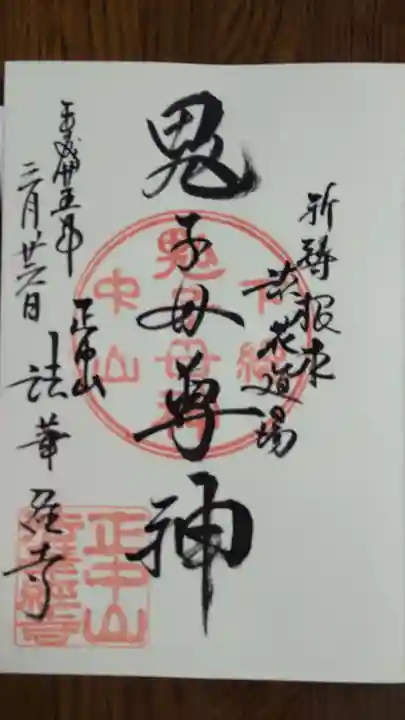 祈祷根本
荒行道場
鬼子母尊神
正中山
法華経寺
平成廿五年
三月廿六日
下総
鬼子母神
中山
正中山
法華経寺